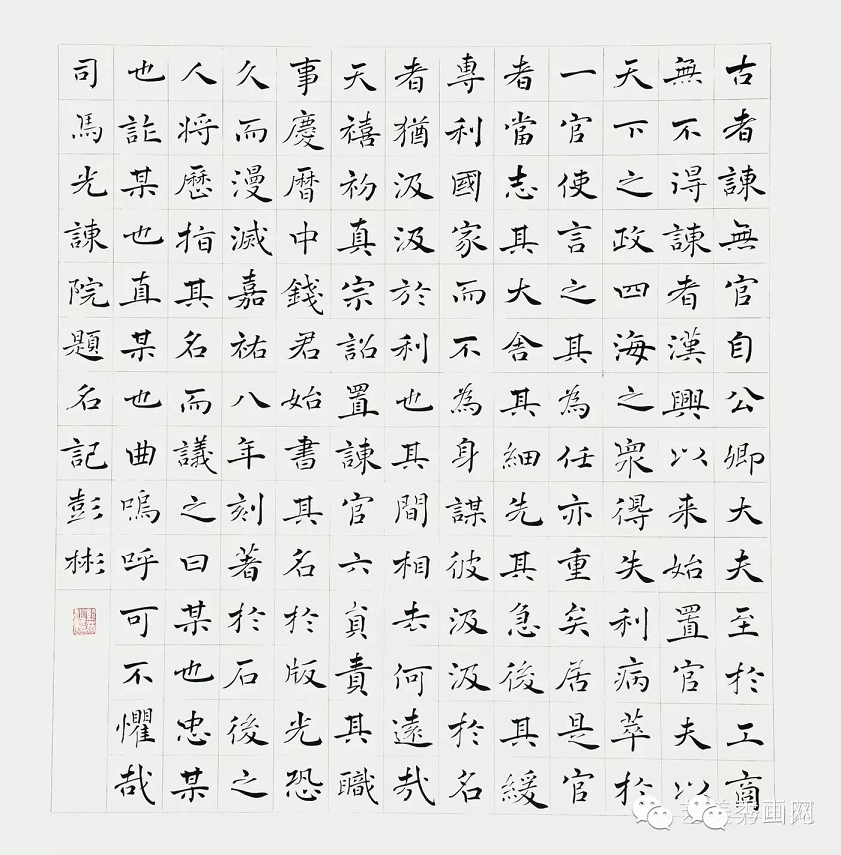 古者諫無官自公卿大夫至於工商
無不得諫者漢興以来始置官夫以
天下之政四海之衆得失利病萃於
一官使言之其為任亦重矣居是官
者當志其大舍其細先其急後其緩
專利國家而不為身謀彼汲汲於名
者猶汲汲於利也其間相去何遠哉
天禧初真宗詔置諫官六員責其職
事慶曆中錢君始書其名於版光恐
久而漫滅嘉祐八年刻著於石後之
人將歷指其名而議之曰某也忠某
也詐某也直某也曲嗚呼可不懼哉
司馬光諫院題名記彭彬
画网